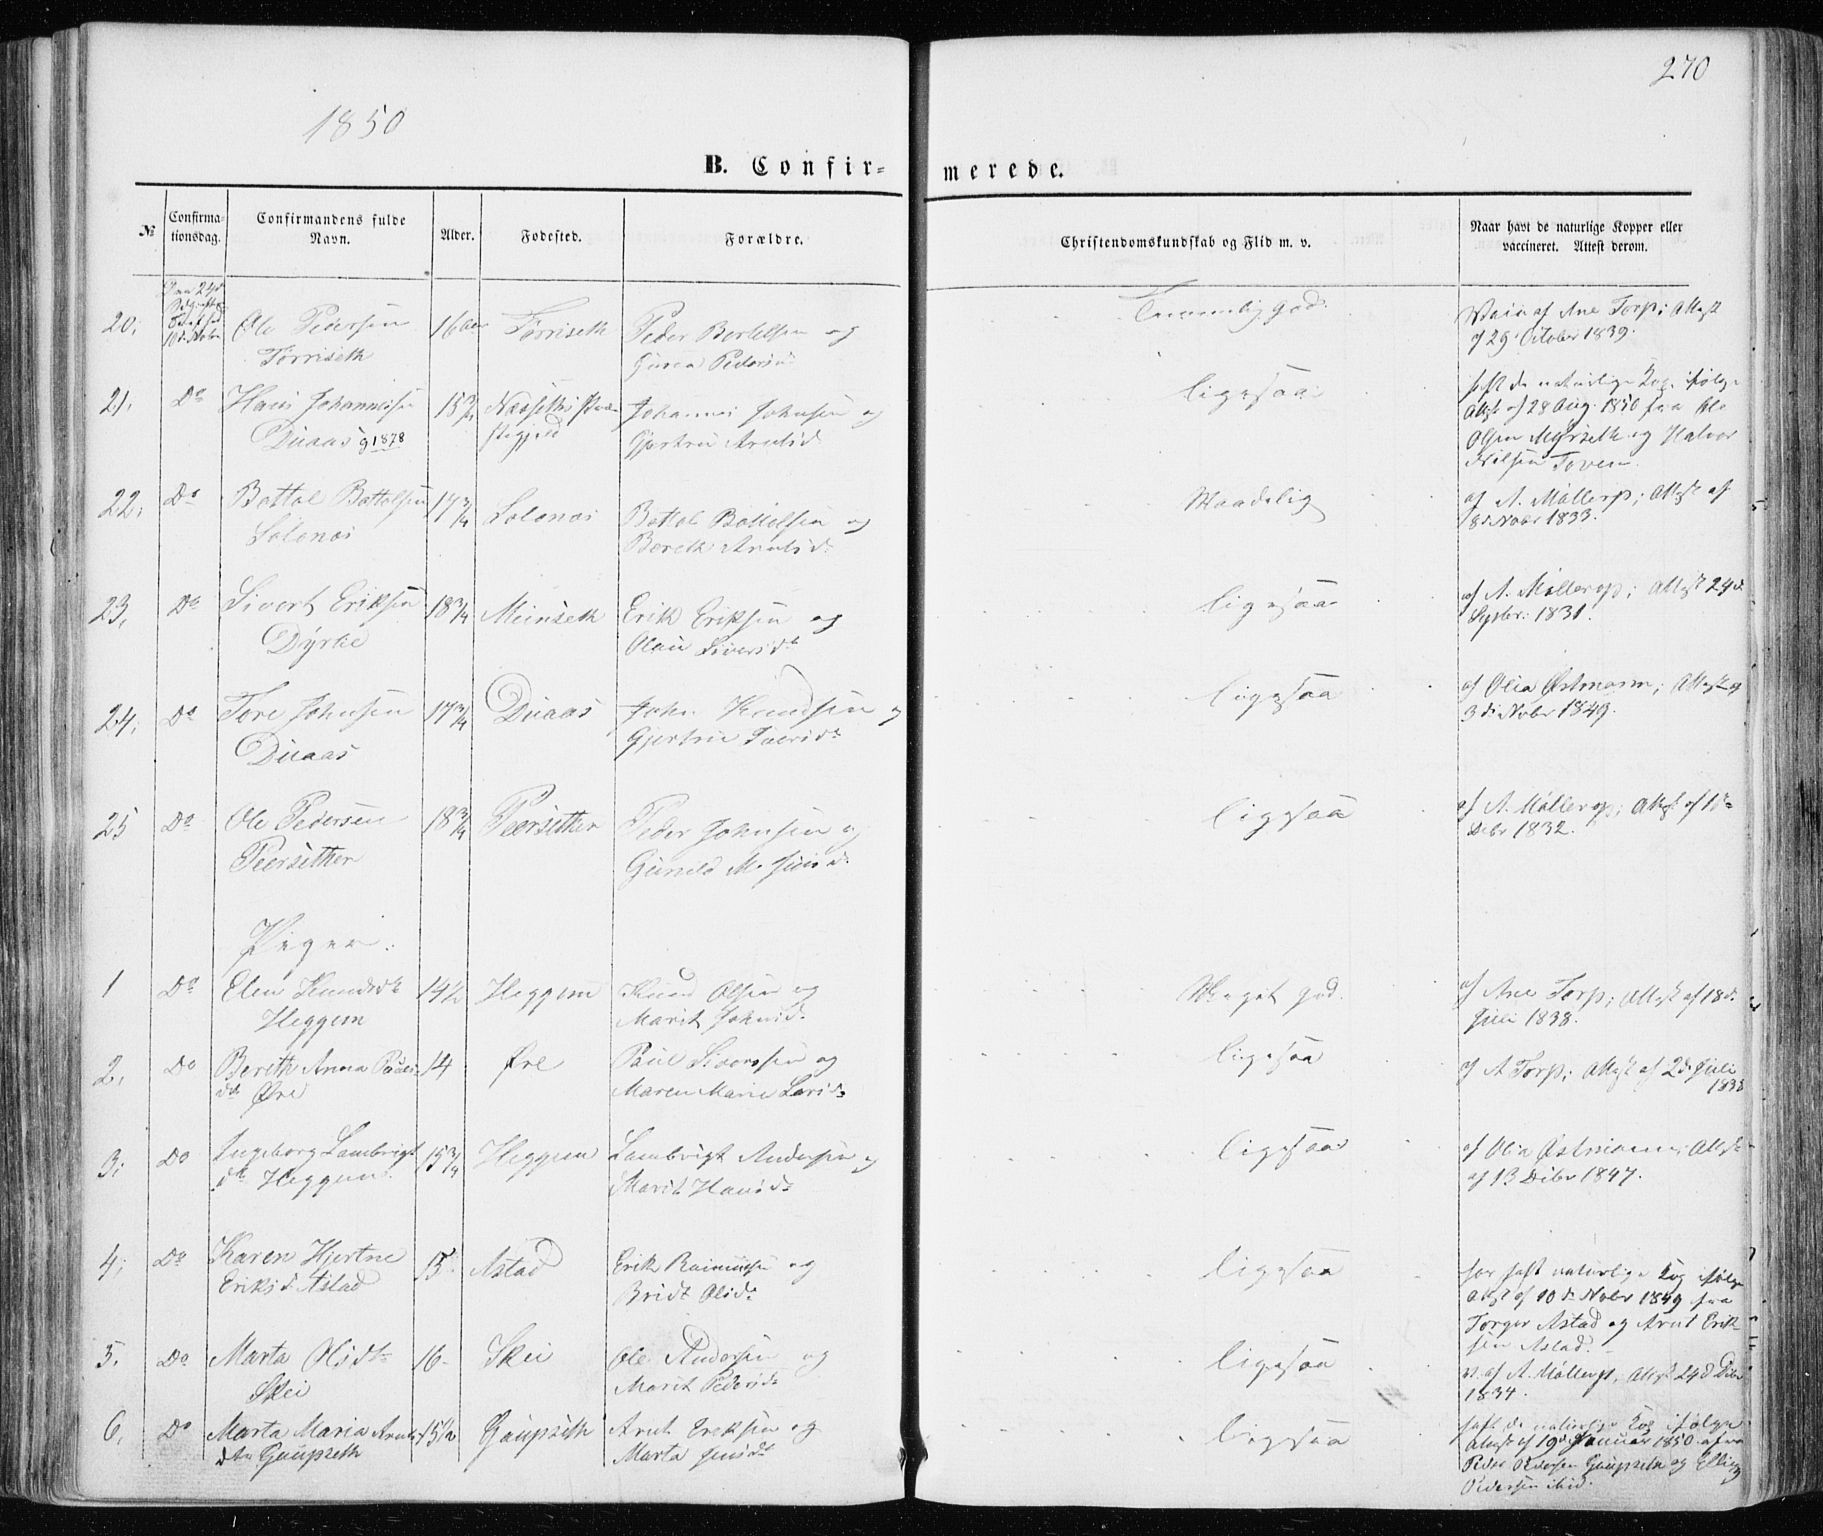 270
1850
B. Confir-
merede.
№
Confirma-
tionsdag.
Confirmandens fulde
Navn.
Alder.
Fødested.
Forældre.
Christendomskundskab og Flid m. v.
Naar havt de naturlige Kopper eller
vaccineret. Attest derom.
20,
Ole Pedersen
Tørriseth
16
Tørriseth
Peder Bertelsen og
Temmelig god.
af Ane Torp; Attest
af 29 October 1839.
21,
Do
Hans Johannesen
Duaas g 1878
15 3/4
Johannes Johnsen og
ligesaa
naturlige Kop. ifølge
Attest af 28 Aug. 1850 fra Ole
Olsen Myrseth og Halvor
Nilsen Toven
22,
Do
Bottol Bottolsen
Solenæs
17 3/4
Solenæs
Bottol Bottolsen og
Bereth Arntsd.
Maadelig
af A. Møllerop; Attest af
8d. Novbr 1833.
23,
Do
Sivert Eriksen
Dyrlie
18 3/4
Meinseth
Erik Eriksen og
ligesaa
af A. Møllerop; Attest 24d.
Septbr. 1831.
24,
Do
Tore Johnsen
Duaas
17 3/4
Duaas
John Knudsen og
ligesaa
af Olia Østmann; Attest af
3d. Nobr 1849.
25
Do
Ole Pedersen
Peersether
18 3/4
Peersether
Peder Johnsen og
ligesaa
af A. Møllerop; Attest af
Debr 1832.
Piger.
1
Do
Elen Knudsdt
Heggem
14 1/2
Heggem
Knud Olsen og
Marit Johnsd.
Meget god.
af Ane Torp; Attest af 18d.
Juli 1838.
2,
Do
Bereth Anna Pauls-
dt Øre
14
Øre
Paul Siversen og
Maren Marie Larsd.
ligesaa
af A Torp; Attest af 2d. Juli
1838
3,
Do
Ingeborg Lambrigt
dt Heggem
15 3/4
Heggem
Lambrigt Andersen og
Marit Hansd.
ligesaa
af Olia Østmann; Attest
af 13 Debr 1847.
4,
Do
Karen Hjertne
Eriksd. Astad
15
Astad
Erik Rasmussen og
Bridt Olsd.
ligesaa
har haft naturlige Kop ifølge
Attest af 10d. Nobr 1849 fra
Torger Astad og Arnt Erik-
sen Astad.
5,
Do
Marta Olsdt
Skei
16
Skei
Ole Andersen og
Marit Pedersd.
ligesaa
v. af A. Møllerop, Attest 24d Debr
1834.
6,
Do
Marta Maria Arnts-
dtr Gaupseth
15 1/2
Gaupseth
Arnt Eriksen og
Marta
ligesaa
haft de naturlige Kop ifølge
Attest af 19d. Januar 1850 fra
Peder Pedersen Gaupseth og Elling
Pedersen ibid.